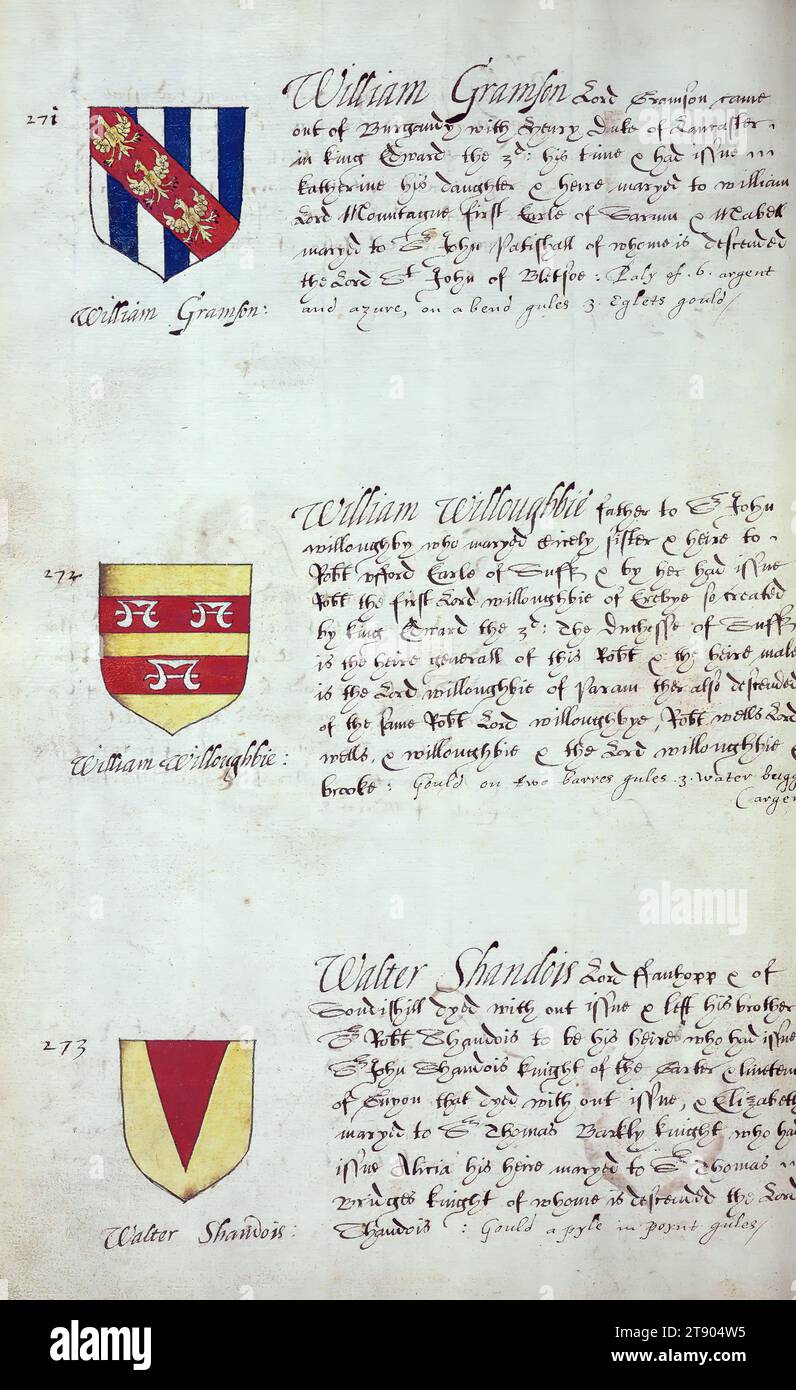 271
William Gramson Lord Gramson came
out of Burgandy with Henry Duke of Lancaster
in king Edward the 3d: his time & had issue
Katherine his daughter & heire maryed to William
Lord Mountague first Earle of Sarum & Mabell
maryed to Sr John Patishall of whome is descended
the Lord St John of Bletsoe: Paly of .6. argent
and azure, on a bend gules 3. Eglets gould/
William Gramson:
272
William Willoughbie father to Sr John
willoughby who maryed Cicely sister & heire to
Robt Ufford Earle of Suff & by her had issue
Robt the first Lord willoughbie of Eresbye so created
by king Edward the 3d: The Duchesse of Suff
is the heire generall of this Robt & the heire male
is the Lord willoughbie of Param ther also descended
of the same Robt Lord willoughbye, Robt wells Lord
wells, & willoughbie & the Lord willoughbie &
brooke: Gould on two barres gules .3. water bugg
(argen
William Willoughbie:
273
Walter Shandois Lord ffanhopp & of
dyed with out issue & left his brother
Sr Robt Shandois to be his heires who had issue
Sr John Shandois knight of the Garter & lieuten
of Guyon that dyed with out issue, & Elizabeth
maryed to Sr Thomas Barkly knight who had
issue Alicia his heire maryed to Sr Thomas
Bridges knight of whome is descended the Lord
Shandois : Gould a pyle in poynt gules/
Walter Shandois:
alamy
Image ID: 2T904W5
www.alamy.com